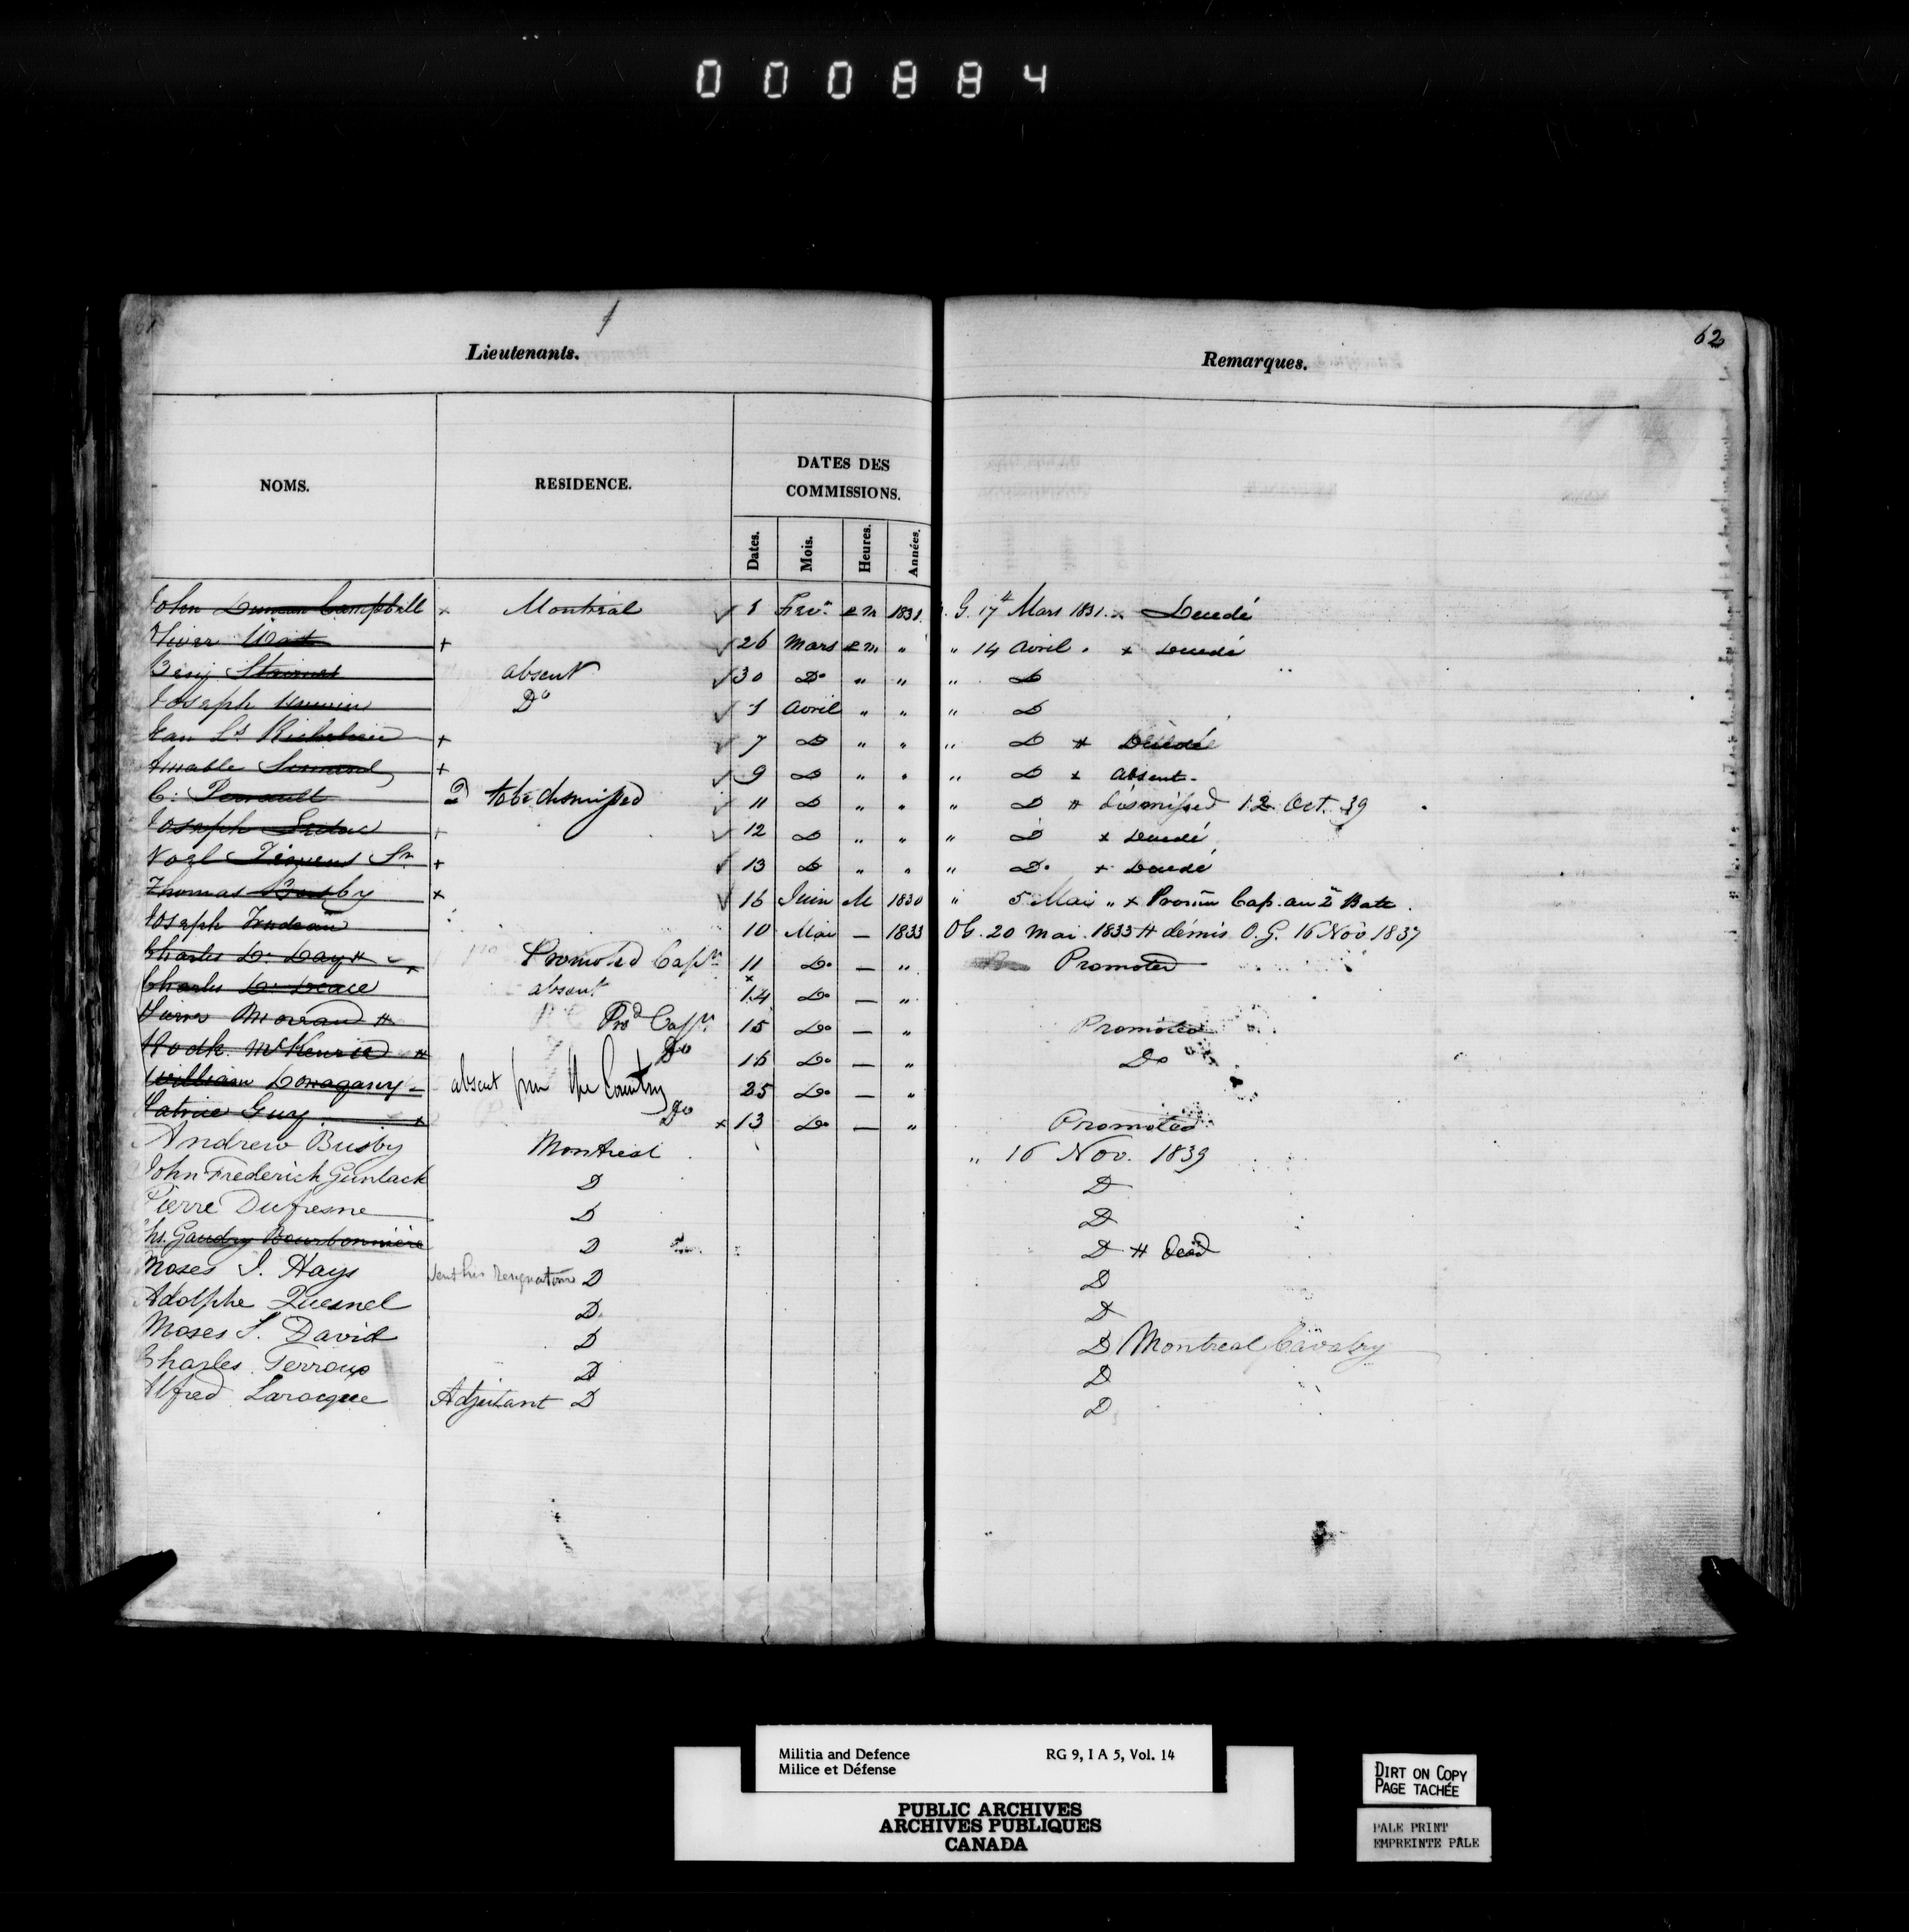 000884
62
Lieutenants. Remarques.
NOMS. RESIDENCE. DATES DES COMMISSIONS.
Dates. Mois. Heures. Années.
John Duncan Campbell x Montréal √ 1 Fevr. 2 m 1831. G. 17 Mars 1831. x Decedé
Oliver Wait + √ 26 Mars 2 m " " 14 Avril. x Decedé
Benj absent √ 30 Do " " " D
Joseph Do √ 1 Avril " " " D
Jean Ls + √ 7 D " " " D * Decedé
Amable Simard + √ 9 D " " " D x Absent.
C. Perrault to be dismissed √ 11 D " " " D # dismissed 12 Oct. 39
Joseph Leduc + √ 12 D " " " D x Decedé
Noel Sr. + √ 13 D " " " D. x Decedé
Thomas Busby x √ 16 Juin M 1830 " 5 Mai " x Promu Cap. au 2 Batt.
Joseph Trudeau 10 Mai — 1833 OG. 20 Mai. 1833 # démis O.G. 16 Nov 1837
Charles D. Day # Promoted Capn 11 Do — " Promoted
Charles D. absent 14 Do — "
Pierre Moreau # Prod Capn 15 Do — " Promoted
Rodk. McKenzie # Do 16 Do — " Do
William Donagany absent from the Country 25 Do — "
Patrice Guy x Do x 13 Do — " Promoted
Andrew Busby Montreal " 16 Nov. 1839
John Frederick Gunlack D D
Pierre Dufresne D D
Chs. Gaudry Bourbonnière D D # Dead
Moses I. Hays Sent his Resignation D D
Adolphe Quesnel D. D
Moses S. David D D Montreal Cavalry
Charles Terroux D D
Alfred Larocque Adjutant D D
Militia and Defence RG 9, I A 5, Vol. 14
Milice et Défense
PUBLIC ARCHIVES
ARCHIVES PUBLIQUES
CANADA
DIRT ON COPY
PAGE TACHÉE
PALE PRINT
EMPREINTE PÂLE